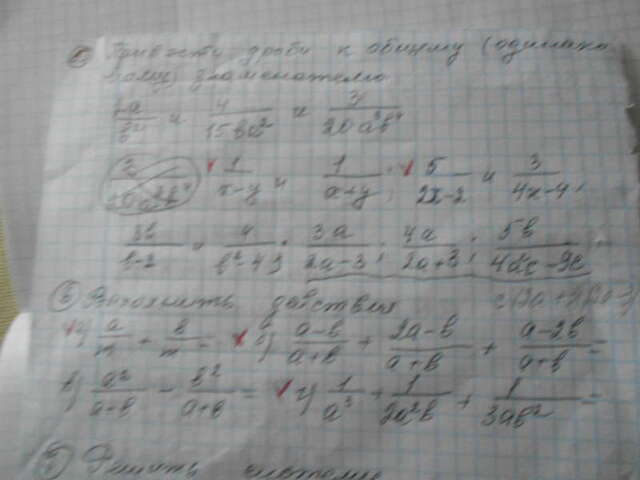 5) Привести дроби к общему (одинако
вому) знаменателю
2a/b² и 4/15ba² и 3/20a³b⁴
1/x-y и 1/x+y; 5/2x-2 и 3/4x-4;
3b/b-2 и 4/b²-4; 3a/2a-3; 4a/2a+3; 5b/4a²c-9c
6) Выполнить действия
a) a/m - b/m = б) a-b/a+b + 2a-b/a+b + a-2b/a+b =
в) a²/a+b - b²/a+b = г) 1/a³ + 1/2a²b + 1/3ab² =
7) Решить системы